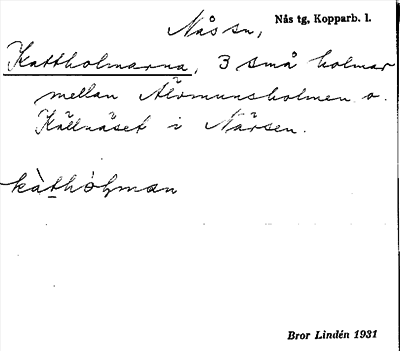 Nås sn,
Nås tg, Kopparb. l.
Kattholmarna, 3 små holmar
mellan Älvmunsholmen o.
Källnäset i Närsen.
kàthòḷman
Bror Lindén 1931